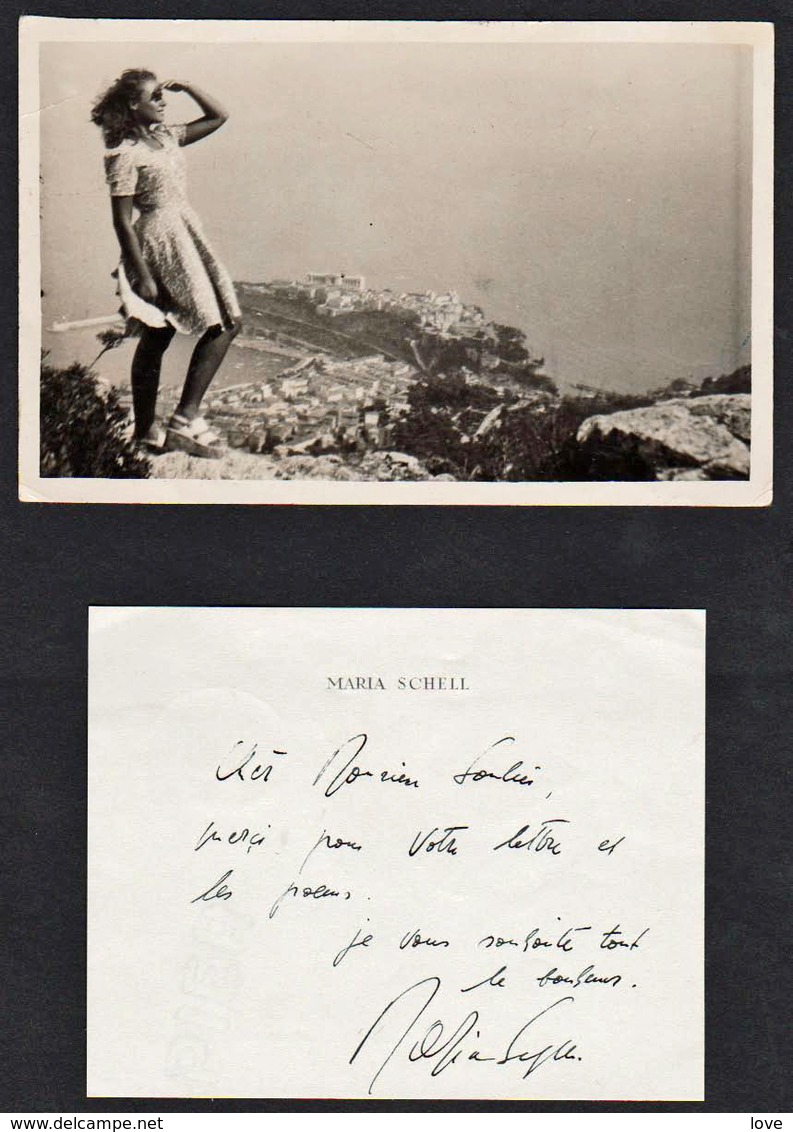 MARIA SCHELL
Cher Monsieur Soulier,
merçi pour votre lettre et
les poems.
je vous souhaite tout
le bonheur.
Maria Schell.
www.delcampe.net
love
love